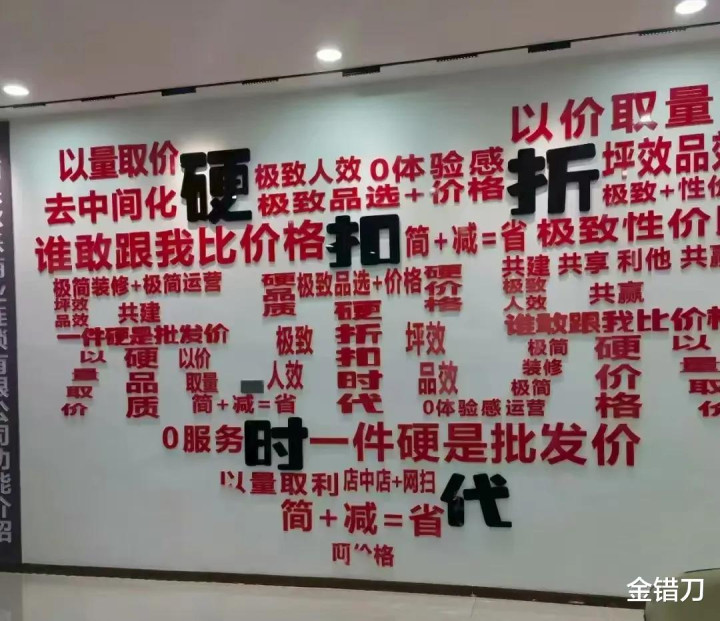 以价取量
以量取价
硬
极致人效 0体验感
折
坪效品效
去中间化
极致品选+价格
极致+性价
谁敢跟我比价格
扣
简+减=省
极致性价
共建 共享 利他 共赢
极简装修+极简运营
硬品质
极致品选+价格
硬价格
极致人效
共赢
坪效品效
共建
一件硬是批发价
极致人效
硬折扣时代
坪效品效
谁敢跟我比价格
以量取价
硬品质
以价取量
极简装修极简
硬价格
以量取价
简+减=省
0体验感运营
0服务
时
一件硬是批发价
以量取利
店中店+网扫
代
简+减=省
连锁有限公司功能介绍
金错刀